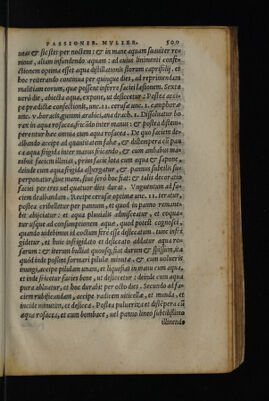 PASSIONIB. MVLIER. 500
nea: & sic ster per noctem: & in mane aquam suauiter re-
moue, aliam infundendo aquam: ad cuius imminens
ctionem optima esset aqua destillationis florum caprifolij. et
hoc reiterando continue per quinque dies, ad reprimendam
malitiam eorum, que possent inferre faciei læsionem. Sexta
uerò die, abiecta aqua, expone, ut desiccetur. Postea acci-
pe prædictæ confectionis, unc. 11. cerusæ unc. 1. camphoræ
unc. v. boracis, gummi arabici, ana drachmas 1. Dissoluitur bo-
rax in aqua rosacea, fricādo inter manus: & postea distem-
perentur hæc omnia cum aqua rosacea. De quo faciem de-
albando accipe ad quantitatem fabæ, & distempera cū pau-
ca aqua frigida inter manus fricando, & cum ambabus ma-
nibus faciem illinias, prius facie lota cum aqua & sapone,
deinde cum aqua frigida aspergatur, & pannus subtilis su-
perponatur, siue mane, siue serò hoc fiat: & talis dealbatio
faciei per tres uel quatuor dies durat. Vnguentum ad fa-
ciem dealbandam. Recipe cerusæ optime unc. 11. teratur,
postea cribelletur per pannum, et quod in panno remane-
bit abijciatur: et aqua pluuialis admisceatur, et coqua-
tur usque ad consumptionem aquæ, quod poterit cognosci,
quando uidebimus id coctum fere esse desiccatum. tunc infri-
gidetur, et inde infrigidato et desiccato addatur aqua ro-
sarum: & iterum bulliat quousque fiat durum & spissum, ita
quòd inde possint formari pilulæ minutæ, & cum uolueris,
inungi, accipe pilulam unam, et liquefiat in manu cum aqua,
et inde fricetur bene ad faciem: ita deinde cum aqua
pura abluatur, et hoc durabit per octo dies. Secundo ad fa-
ciem rubificandam, accipe radicem uiticellæ, et munda, et
incide minutim, et desicca. Postea pulueriza et distēpera cū
aqua rosacea, et cum bombace, uel panno lineo subtilissimo
illinendo